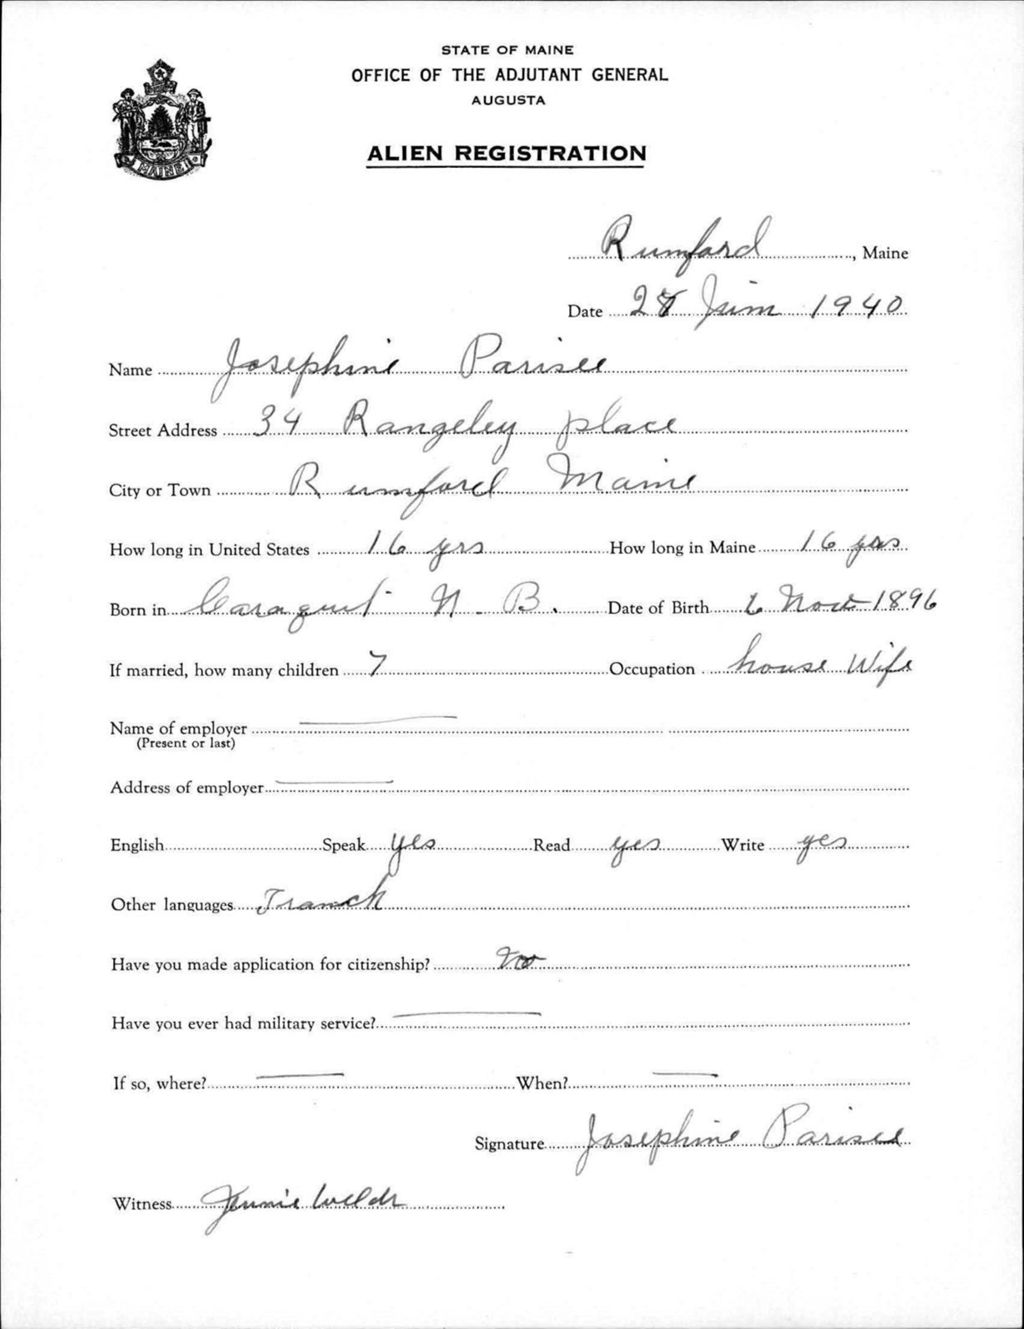 STATE OF MAINE
OFFICE OF THE ADJUTANT GENERAL
AUGUSTA
ALIEN REGISTRATION
MAINE
Rumford, Maine
Date 28 Juin 1940
Name Josephine Parisee
Street Address 34 Rangeley place
City or Town Rumford Maine
How long in United States 16 yrs How long in Maine 16 yrs
Born in Caraquet N.B. Date of Birth 6 Nov 1896
If married, how many children 7 Occupation house Wife
Name of employer
(Present or last)
Address of employer
English Speak yes Read yes Write yes
Other languages Franch
Have you made application for citizenship? no
Have you ever had military service?
If so, where? When?
Signature Josephine Parisee
Witness Jennie